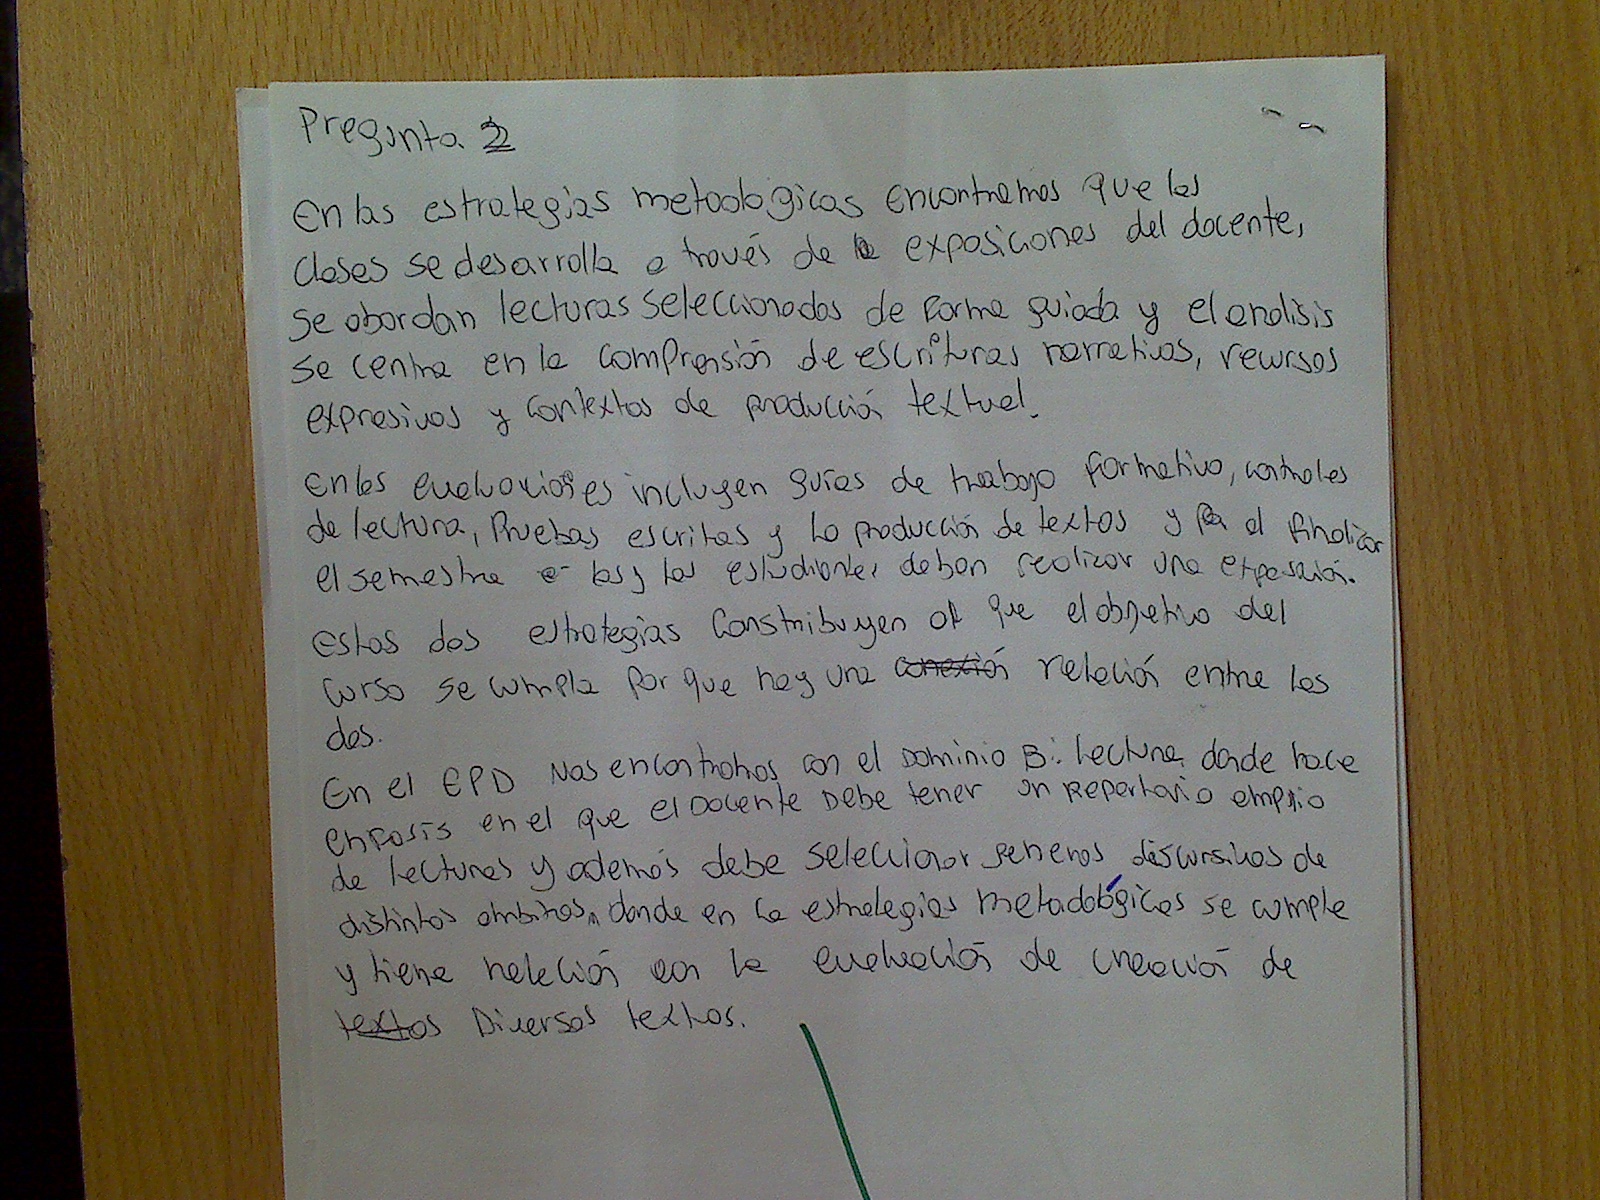 Pregunta 2
En las estrategias metodológicas encontramos que las
clases se desarrolla a través de la exposiciones del docente,
se abordan lecturas seleccionadas de forma guiada y el analisis
se centra en la comprensión de escrituras narrativas, recursos
expresivos y contextos de producción textual.
En las evaluaciones incluyen guías de trabajo formativo, controles
de lectura, Pruebas escritas y la producción de textos y al finalizar
el semestre las y los estudiantes deben realizar una exposición.
Estas dos estrategias constribuyen al que el objetivo del
curso se cumpla por que hay una conexión relación entre las
dos.
En el EPD Nos encontramos con el Dominio B: lectura, donde hace
enfasis en el que el Docente Debe tener un Repertorio amplio
de lecturas y además debe seleccionar generos discursivos de
distintos ambitos, donde en la estrategias metodológicas se cumple
y tiene relación con la evaluación de creación de
textos Diversos textos.